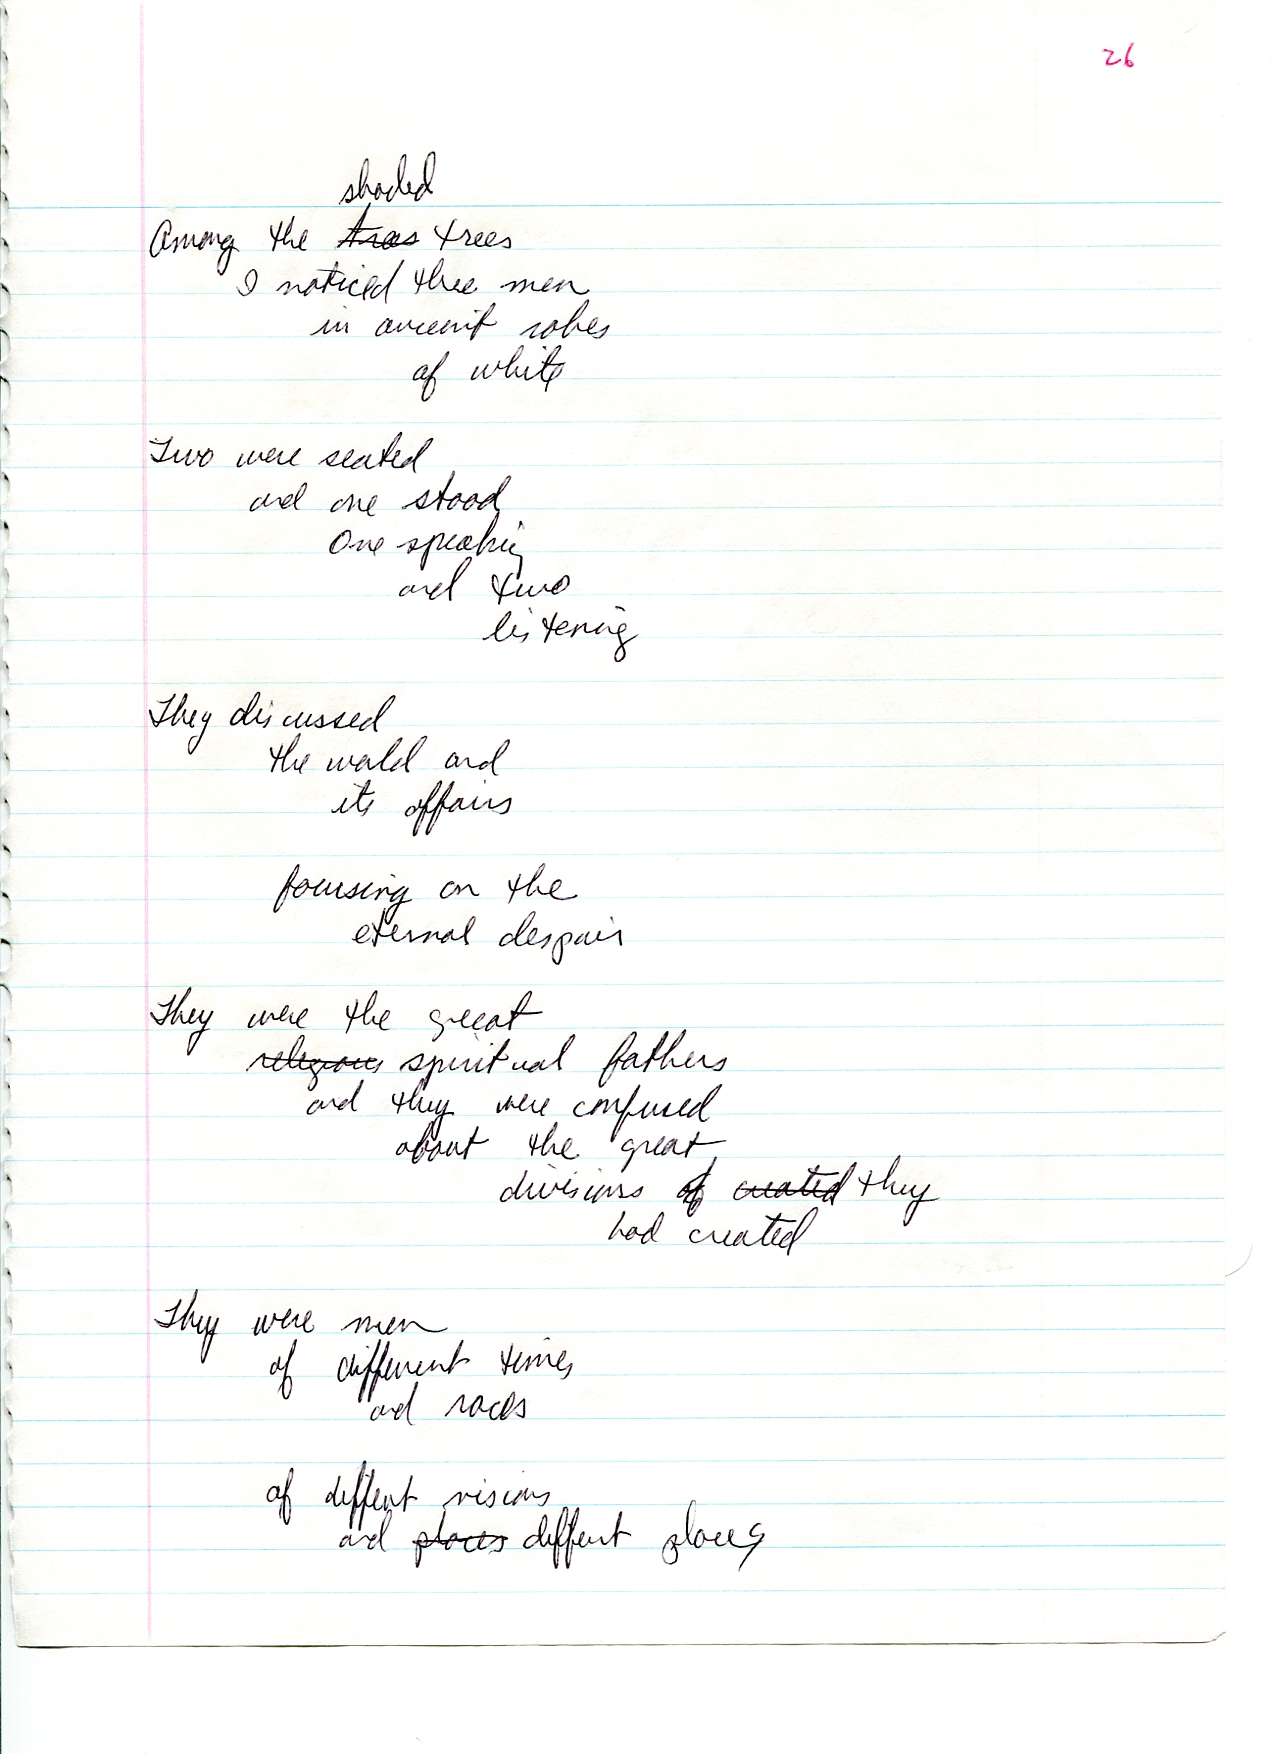 26
shaded
Among the trees trees
I noticed three men
in ancient robes
of white
Two were seated
and one stood
One speaking
and two
listening
They discussed
the world and
its affairs
focusing on the
eternal despair
They were the great
religious spiritual fathers
and they were confused
about the great
divisions of created they
had created
They were men
of different times
and races
of diffent visions
and places diffent places